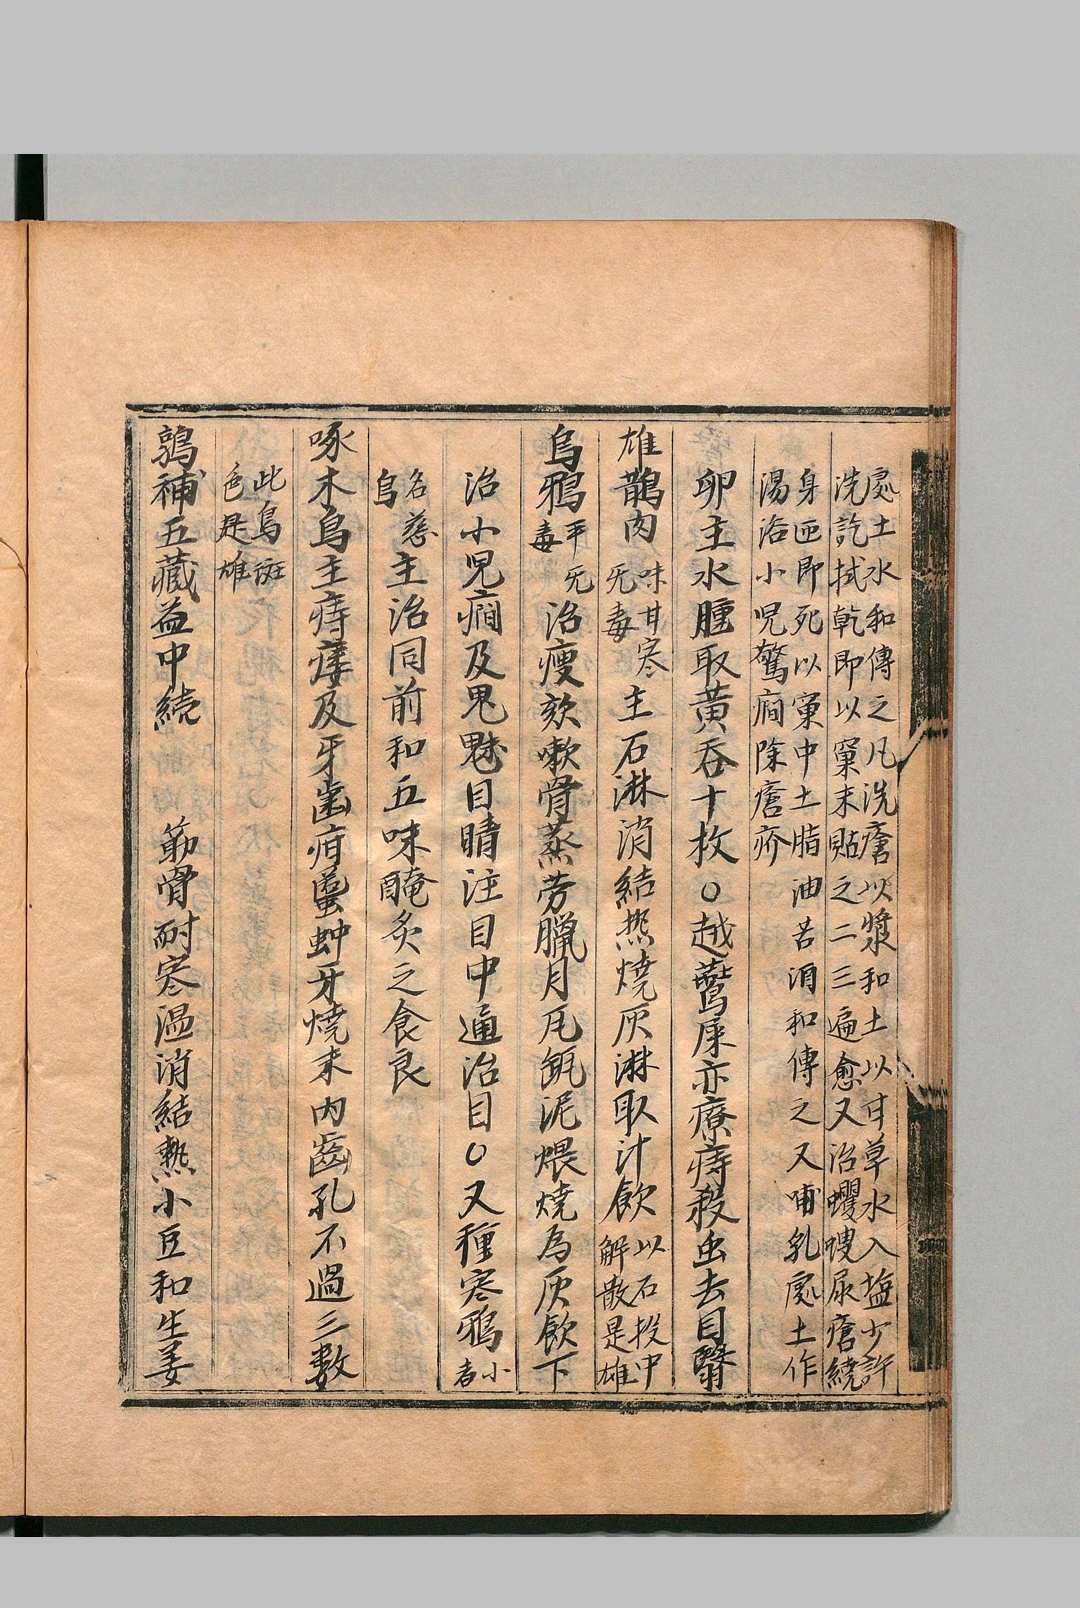 處土水和傅之凡洗瘡以漿和土以甘草水入塩少許
洗訖拭乾即以窠末貼之二三遍愈又治蠼螋尿瘡繞
身匝即死以窠中土脂油苦酒和傅之又哺乳處土作
湯浴小児驚癎除瘡疥
卵主水腫取黃吞十枚○越鷰屎亦療痔殺虫去目翳
雄鵲肉味甘寒无毒主石淋消結熱燒灰淋取汁飲以石投中解散是雄
烏鴉平无毒治瘦欬嗽骨蒸劳臘月瓦缻泥煨燒為灰飲下
治小児癎及鬼魅目睛注目中通治目○又種寒鴉小者
名慈烏主治同前和五味醃炙之食良
啄木鳥主痔瘻及牙齒疳䘌蚛牙燒末內齒孔不過三數
此鳥斑色是雄
鶉補五藏益中続 筋骨耐寒温消結熱小豆和生姜